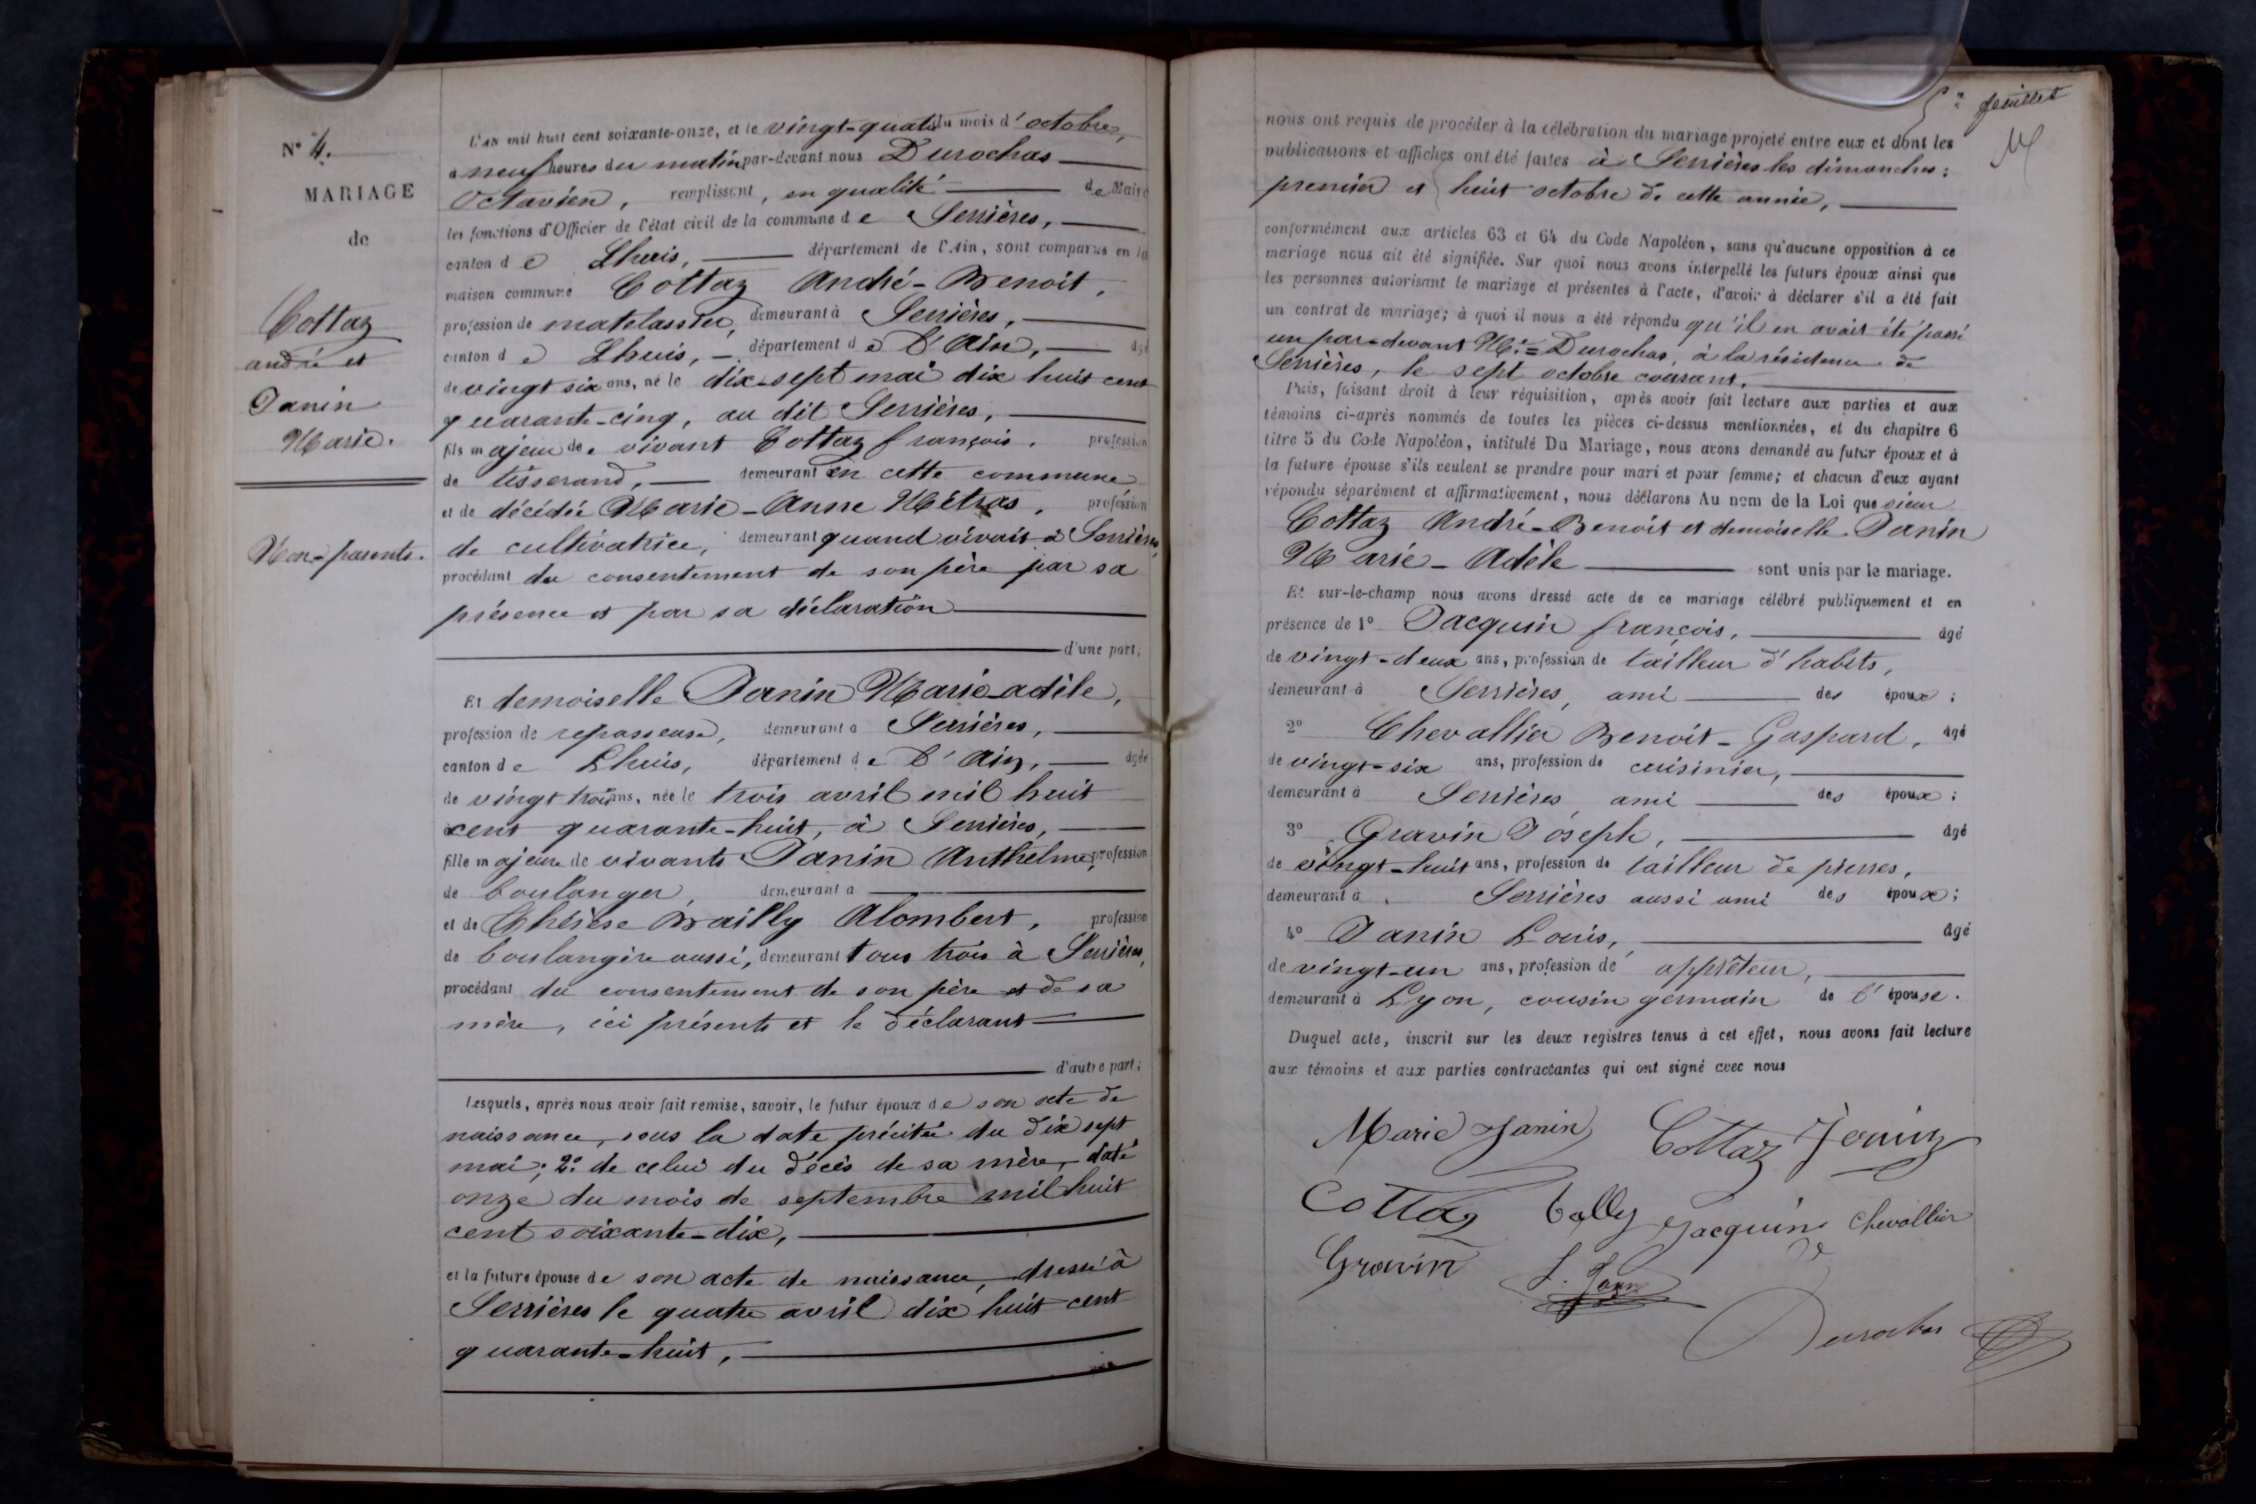 N° 4.
MARIAGE
de
Cottaz
andré et
Janin
Marie.
Non-parents.
L'an mil huit cent soixante-onze, et le vingt-quatre du mois d'octobre,
à neuf heures du matin par-devant nous Durochas
Octavien, remplissant, en qualité de Maire
les fonctions d'Officier de l'état civil de la commune de Serrières,
canton de Lhuis, département de l'Ain, sont comparus en la
maison commune Cottaz André-Benoit,
profession de matelassier, demeurant à Serrières,
canton de Lhuis, département de l'Ain, âgé
de vingt six ans, né le dix-sept mai dix huit cent
quarante-cinq, au dit Serrières,
fils majeur de vivant Cottaz françois, profession
de tisserand, demeurant en cette commune
et de décédée Marie-Anne Métras, profession
de cultivatrice, demeurant quand vivait à Serrières,
procédant du consentement de son père par sa
présence et par sa déclaration
d'une part;
Et demoiselle Janin Marie-adèle,
profession de repasseuse, demeurant à Serrières,
canton de Lhuis, département de l'Ain, âgée
de vingt trois ans, née le trois avril mil huit
cent quarante-huit, à Serrières,
fille majeure de vivants Janin Anthelme, profession
de boulanger, demeurant à
et de Thérèse Bailly Alombert, profession
de boulangère aussi, demeurant tous trois à Serrières,
procédant du consentement de son père et de sa
mère, ici présents et le déclarant
d'autre part;
Lesquels, après nous avoir fait remise, savoir, le futur époux de son acte de
naissance, sous la date précitée du dix sept
mai; 2° de celui du décès de sa mère, daté
onze du mois de septembre mil huit
cent soixante-dix,
et la future épouse de son acte de naissance, dressé à
Serrières le quatre avril dix huit cent
quarante-huit,
5e feuillet
M
nous ont requis de procéder à la célébration du mariage projeté entre eux et dont les
publications et affiches ont été faites à Serrières les dimanches:
premier et huit octobre de cette année,
conformément aux articles 63 et 64 du Code Napoléon, sans qu'aucune opposition à ce
mariage nous ait été signifiée. Sur quoi nous avons interpellé les futurs époux ainsi que
les personnes autorisant le mariage et présentes à l'acte, d'avoir à déclarer s'il a été fait
un contrat de mariage; à quoi il nous a été répondu qu'il en avait été passé
un par-devant Me Durochas, à la résidence de
Serrières, le sept octobre courant.
Puis, faisant droit à leur réquisition, après avoir fait lecture aux parties et aux
témoins ci-après nommés de toutes les pièces ci-dessus mentionnées, et du chapitre 6
titre 5 du Code Napoléon, intitulé Du Mariage, nous avons demandé au futur époux et à
la future épouse s'ils veulent se prendre pour mari et pour femme; et chacun d'eux ayant
répondu séparément et affirmativement, nous déclarons Au nom de la Loi que sieur
Cottaz André-Benoit et demoiselle Janin
Marie-Adèle sont unis par le mariage.
Et sur-le-champ nous avons dressé acte de ce mariage célébré publiquement et en
présence de 1° Jacquin françois, âgé
de vingt-deux ans, profession de tailleur d'habits,
demeurant à Serrières, ami des époux;
2° Chevallier Benoit-Gaspard, âgé
de vingt-six ans, profession de cuisinier,
demeurant à Serrières ami des époux;
3° Gravin Joseph, âgé
de vingt-huit ans, profession de tailleur de pierres,
demeurant à Serrières aussi ami des époux;
4° Janin Louis, âgé
de vingt-un ans, profession de apprêteur,
demeurant à Lyon, cousin germain de l'épouse.
Duquel acte, inscrit sur les deux registres tenus à cet effet, nous avons fait lecture
aux témoins et aux parties contractantes qui ont signé avec nous
Marie Janin Cottaz Janin
Cottaz Bally Jacquin Chevallier
Gravin L. Janin
Durochas